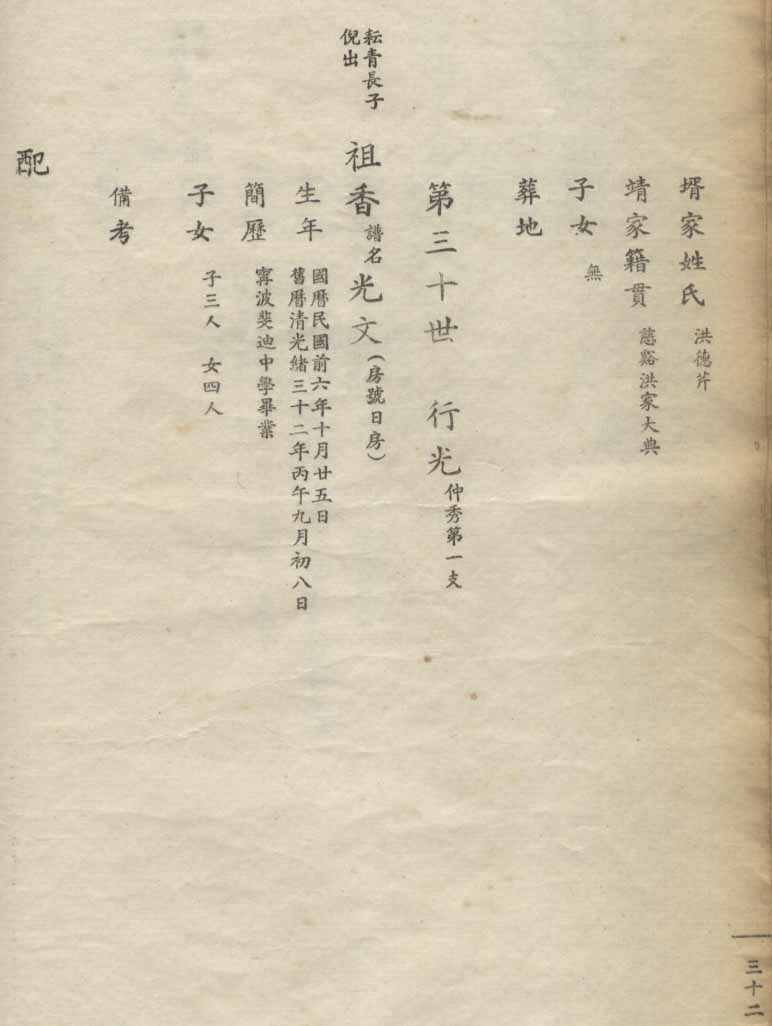 壻家姓氏 洪德芹
靖家籍貫 慈谿洪家大典
子女 無
葬地
第三十世 行光 仲秀第一支
耘青長子
倪出
祖香 譜名 光文(房號日房)
生年 國曆民國前六年十月廿五日
舊曆清光緒三十二年丙午九月初八日
簡歷 寗波斐迪中學畢業
子女 子三人 女四人
備考
配
三十二